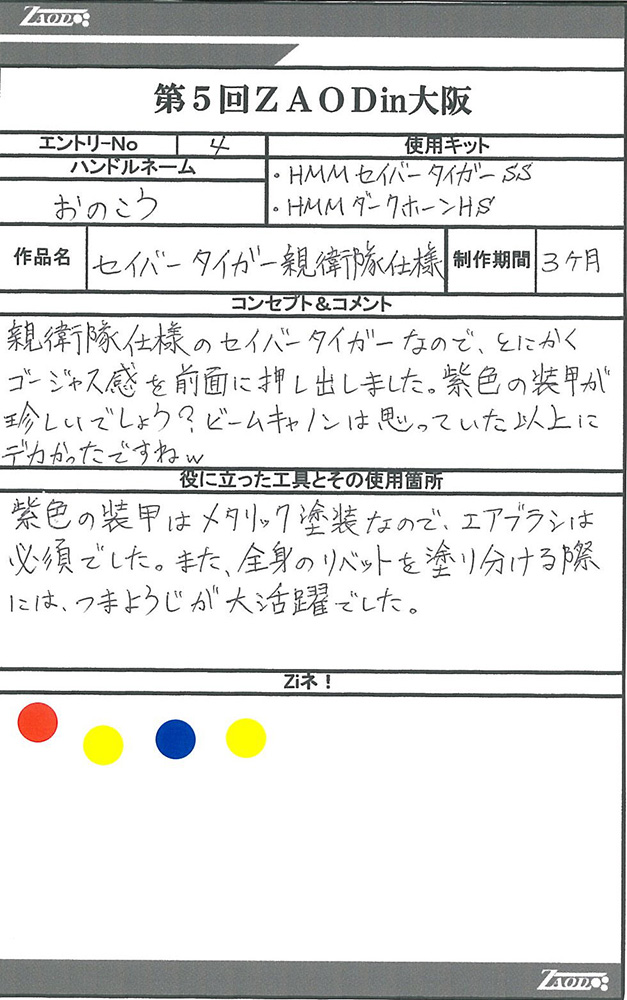 ZAOD
第5回ZAODin大阪
エントリーNo 4 使用キット
ハンドルネーム
・HMMセイバータイガーSS
おのこう
・HMMダークホーンHS
作品名 セイバータイガー親衛隊仕様 制作期間 3ケ月
コンセプト＆コメント
親衛隊仕様のセイバータイガーなので、とにかく
ゴージャス感を前面に押し出しました。紫色の装甲が
珍しいでしょう?ビームキャノンは思っていた以上に
デカかったですねw
役に立った工具とその使用箇所
紫色の装甲はメタリック塗装なので、エアブラシは
必須でした。また、全身のリベットを塗り分ける際
には、つまようじが大活躍でした。
Ziネ！
ZAOD